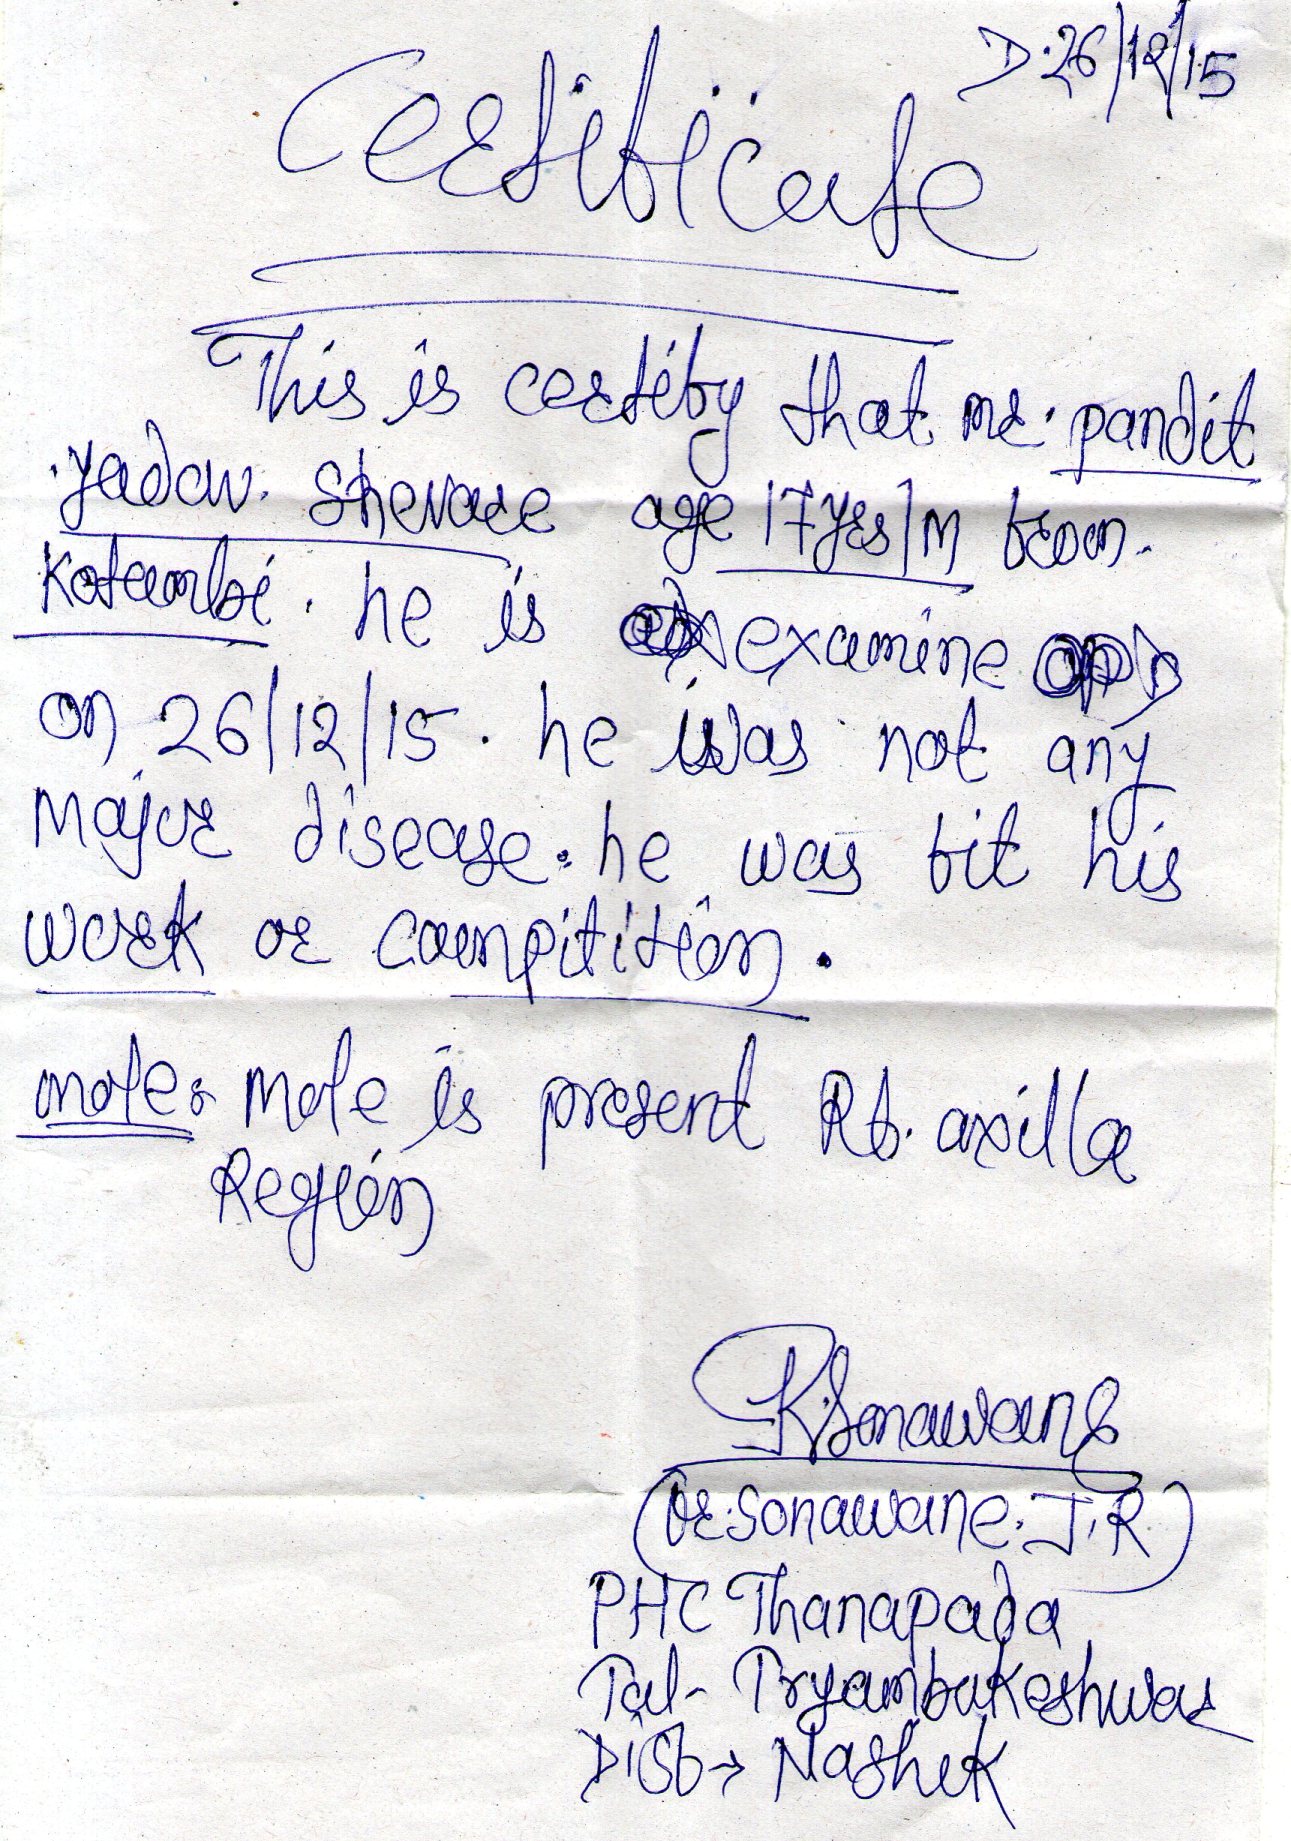 D. 26/12/15
Certificate
This is certify that mr. pandit
yadav. shevare age 17yrs/M from.
Kotambi. he is examine
on 26/12/15. he was not any
major disease. he was fit his
work or compitition.
mole: mole is present Rt. axilla
Region
Sonawane
(Dr. Sonawane. J.R)
PHC Thanapada
Tal- Tryambakeshwar
Dist → Nashik